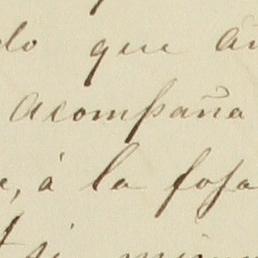 do que
acompaña
, á la fosa
si